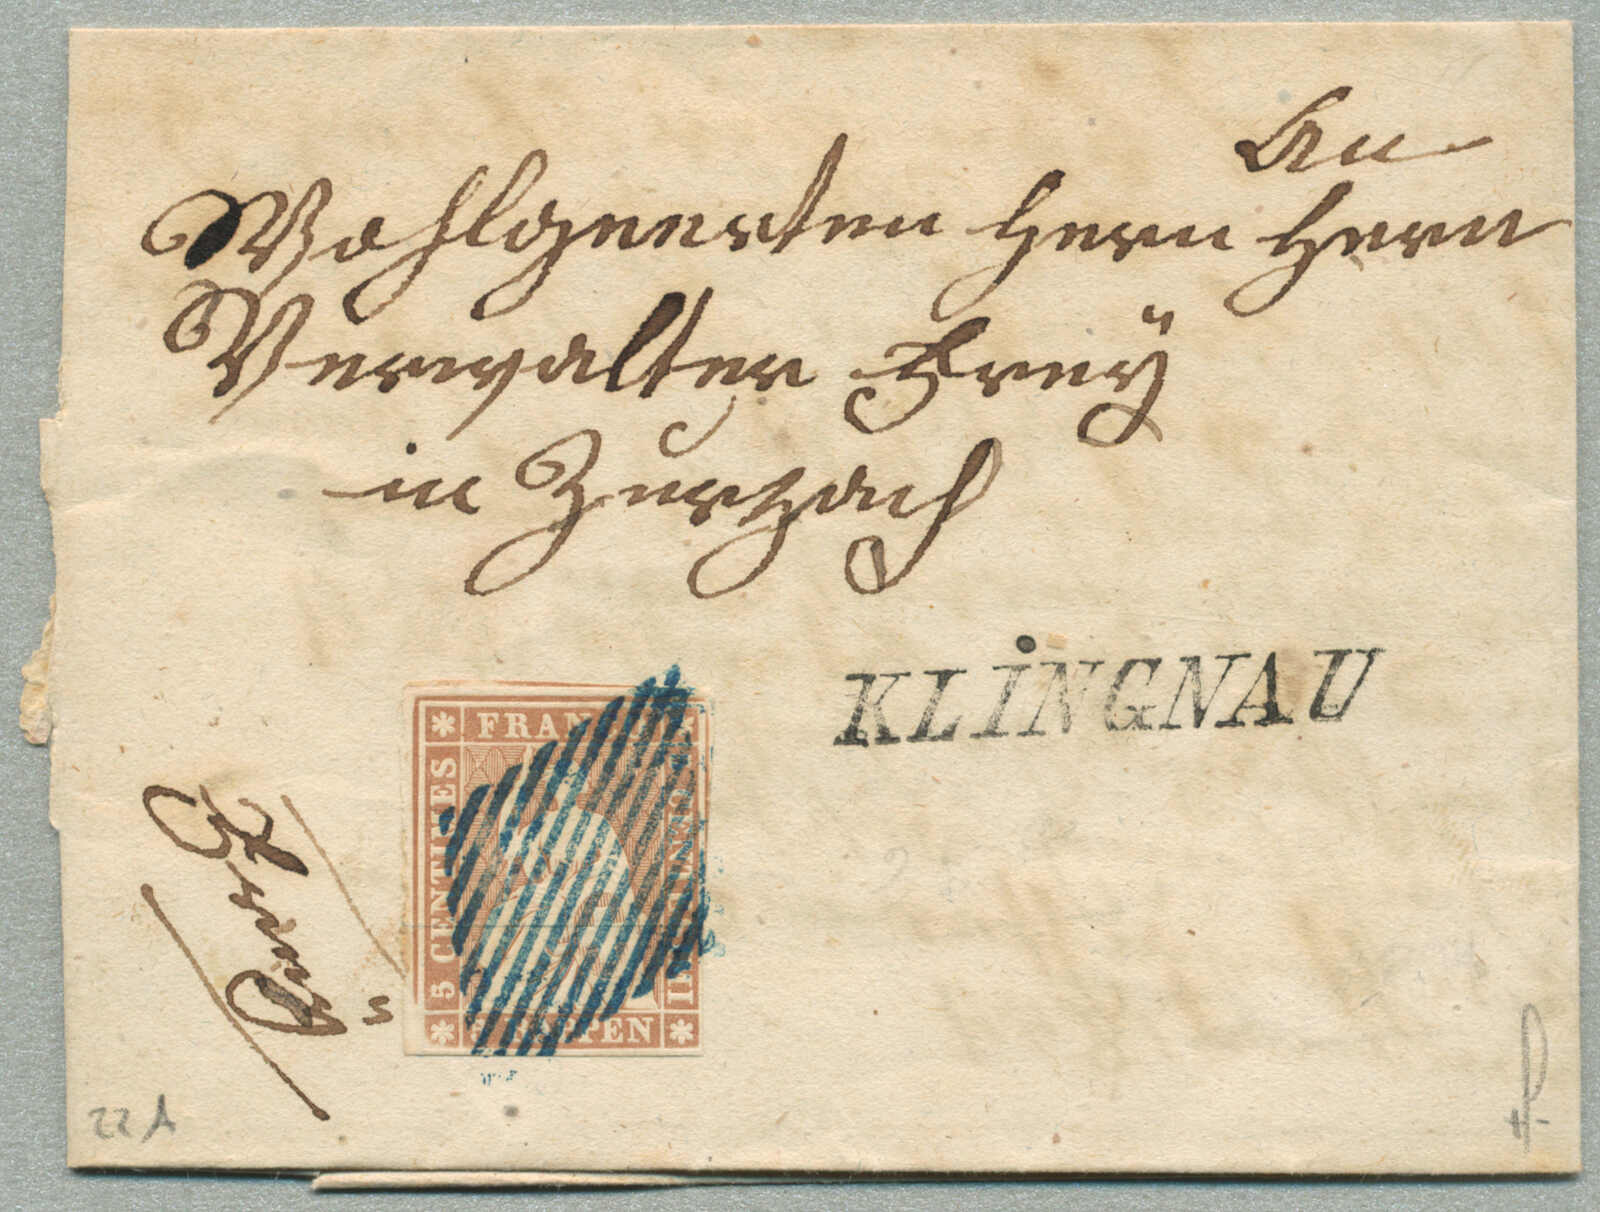 An
Wohlgeerten Herrn Herrn
Verwalter Frey
in Zurzach
KLINGNAU
FRANCO
5 CENTIMES
5 RAPPEN
Franco
22A